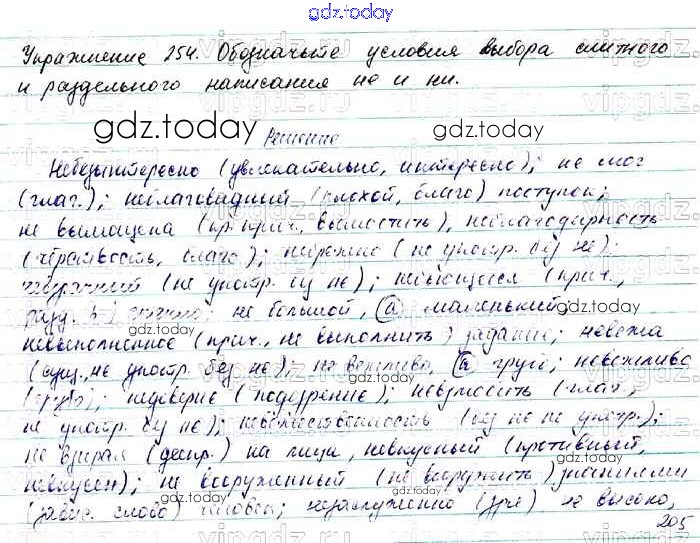 gdz.today
Упражнение 254. Обозначьте условия выбора слитного
и раздельного написания не и ни.
gdz.today gdz.today
Решение
Небезынтересно (увлекательно, интересно); не мог
(глаг.); неблаговидный (плохой, благо) поступок;
не вымощена (кр. прич., вымостить), неблагодарность
(чёрствость, благо); небрежно (не употр. без не);
(не употр. без не); (прич.,
gdz.today не большой, а маленький;
невыполненное (прич., не выполнить) задание; невежа
(сущ., не употр. без не); не вежливо, а грубо; невежливо
(грубо); недоверие (подозрение); (глаг.,
не употр. без не); (без не не употр.);
не взирая (деепр.) на лица, невкусный (противный,
невкусен); не вооруженный (не вооружить) знаниями
(завис. слово) человек; незаслуженно (зря) не высоко,
gdz.today
gdz.today
gdz.today
205